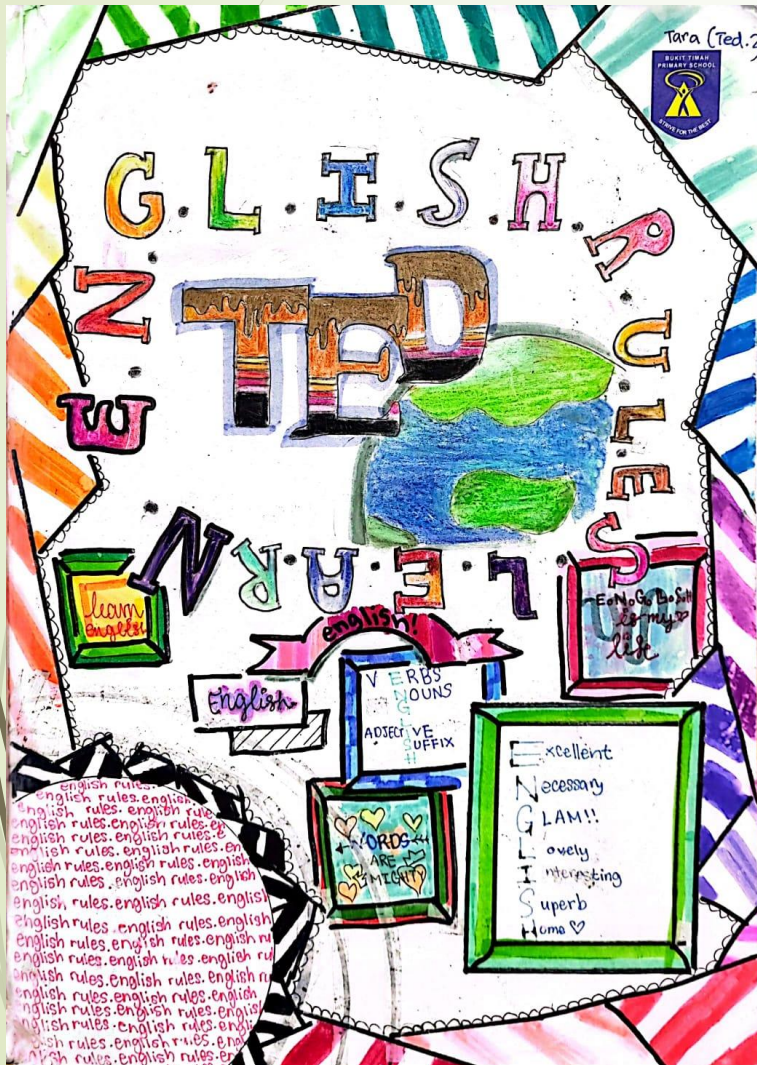 Tara (Ted.2
BUKIT TIMAH
PRIMARY SCHOOL
STRIVE FOR THE BEST
E N G . L . I . S . H . R . U . L . E . S
TED
L . E . A . R . N
learn
English
E.N.G.L.I.S.H
is my
life
english!
English
V ERBS
NOUNS
ADJECTIVE
SUFFIX
H
WORDS
ARE
MIGHTY
Excellent
Necessary
GLAM!!
Lovely
Interesting
Superb
Home ♡
english rules.
english rules.english
english rules. english rule
english rules.english rules.e
english rules.english rules.e
english rules.english rules.en
english rules.english rules.english
english rules.english rules.english
english rules.english rules.english
english rules.english rules.english
english rules.english rules.english ru
english rules.english rules.english ru
english rules.english rules.english ru
english rules.english rules.english
english rules.english rules.english
english rules.english rules.engli
lish rules.english rules.engl
lish rules.english rules.en